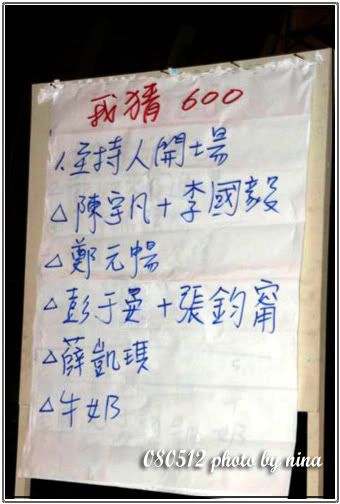 我猜 600
1.主持人開場
△陳宇凡+李國毅
△鄭元暢
△彭于晏+張鈞甯
△薛凱琪
△牛奶
080512 photo by nina